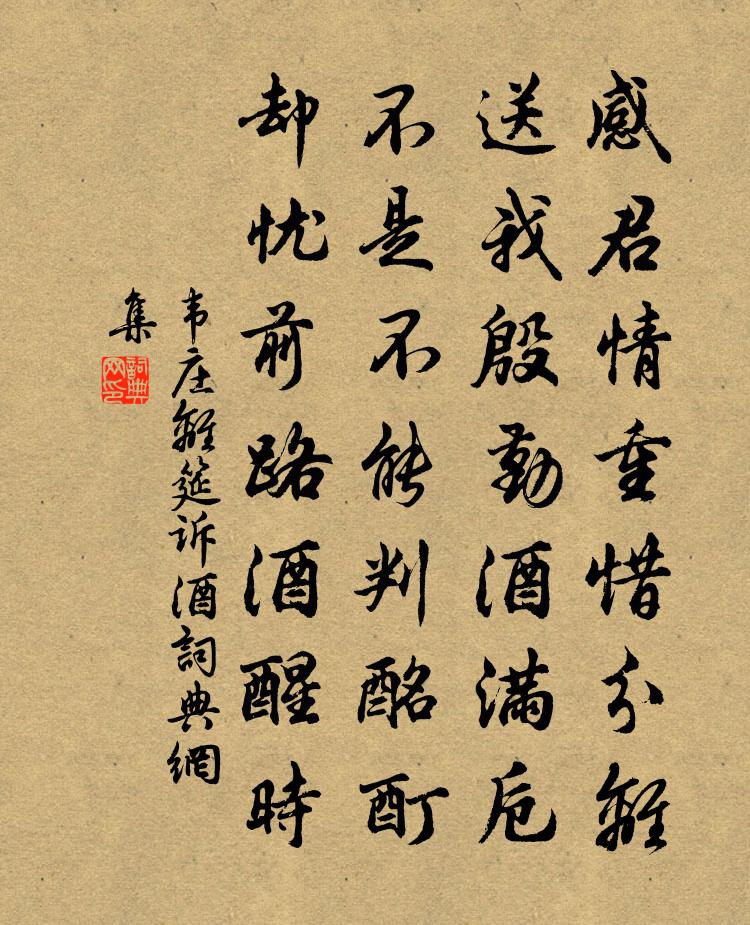 感君情重惜分離
送我殷勤酒满卮
不是不能判酩酊
却忧前路酒醒時
韦庄離筵訴酒詞典網
集
詞典网印